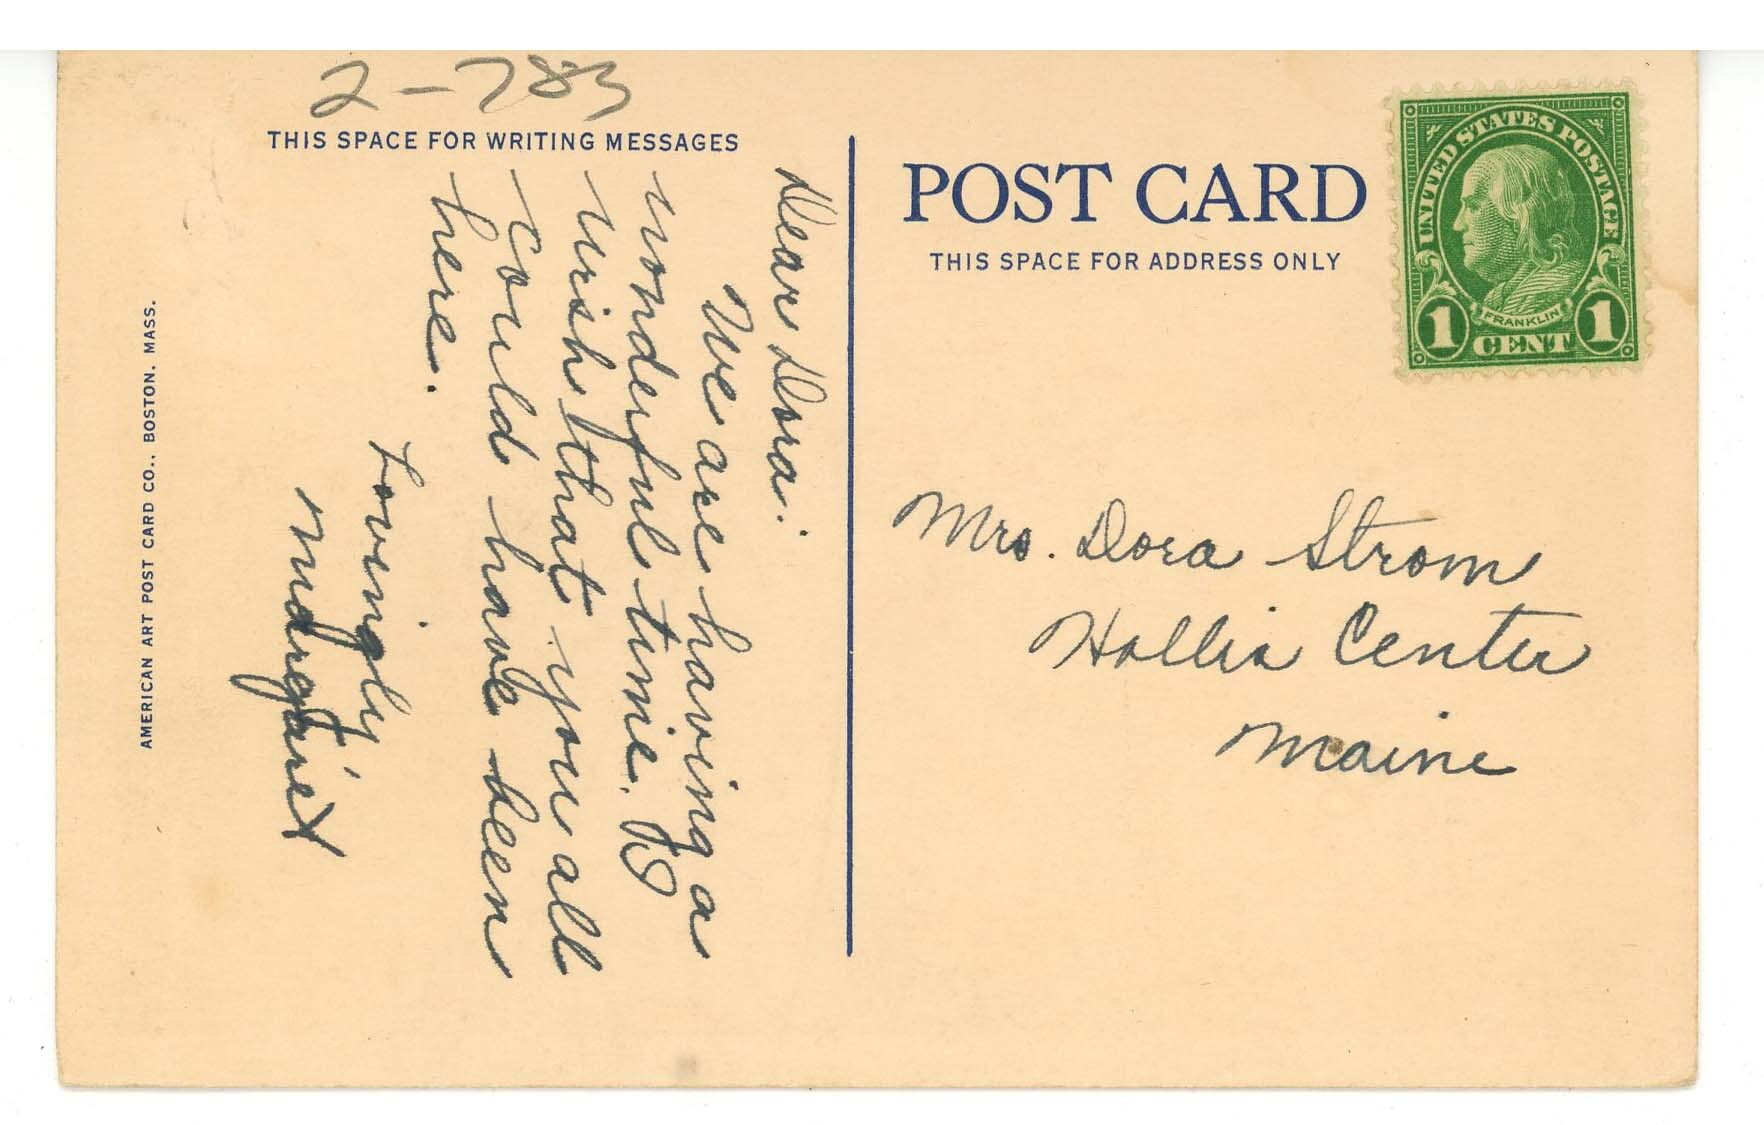 2-783
THIS SPACE FOR WRITING MESSAGES
Dear Dora:
We are having a
wonderful time. I
wish that you all
could have been
here.
Lovingly
Margaret
AMERICAN ART POST CARD CO., BOSTON, MASS.
POST CARD
THIS SPACE FOR ADDRESS ONLY
UNITED STATES POSTAGE
FRANKLIN
1 CENT 1
Mrs. Dora Strom
Hollis Center
Maine